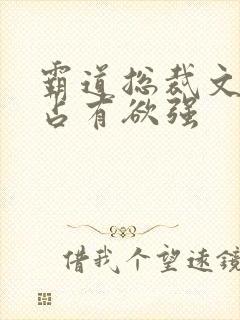 霸道总裁文
占有欲强
借我个望远镜